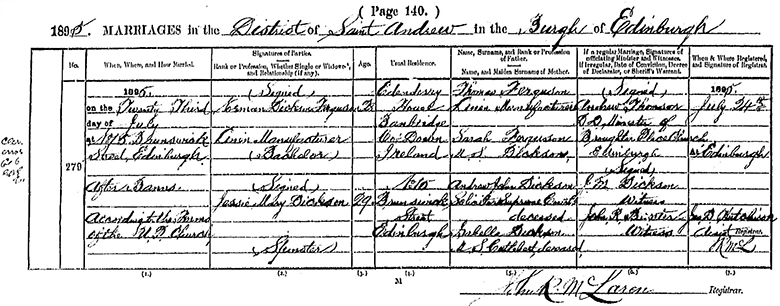 ( Page 140. )
1895. MARRIAGES in the District of Saint Andrew in the Burgh of Edinburgh
No.
When, Where, and How Married.
Signatures of Parties.
Rank or Profession, Whether Single or Widowed, and Relationship (if any).
Age.
Usual Residence.
Name, Surname, and Rank or Profession of Father.
Name, and Maiden Surname of Mother.
If a regular Marriage, Signatures of officiating Minister and Witnesses.
If irregular, Date of Conviction, Decree of Declarator, or Sheriff's Warrant.
When & Where Registered, and Signature of Registrar.
279
1895.
on the Twenty Third
day of July
at Brunswick
Street, Edinburgh
After Banns
According to the Forms
of the U. P. Church
(Signed)
Norman Dickson Ferguson
Linen Manufacturer
(Bachelor)
(Signed)
Jessie May Dickson
(Spinster)
29
Edenderry
House
Banbridge
Co: Down
Ireland
Brunswick
Street
Edinburgh
Thomas Ferguson
Linen Manufacturer
Sarah Ferguson
M. S. Dickson
Andrew John Dickson
Solicitor Supreme Courts
deceased
Isabella Dickson
M. S. Cuthbert deceased
(Signed)
Andrew Thomson
D D Minister of
Broughton Place Church
Edinburgh
(Signed)
Dickson
Witness
John R.
Witness
1895.
July 24th
at Edinburgh
Hutchison
Assist Registrar.
R McL
(1.) (2.) (3.) (4.) (5.) (6.) (7.)
M
John R. McLaren Registrar.